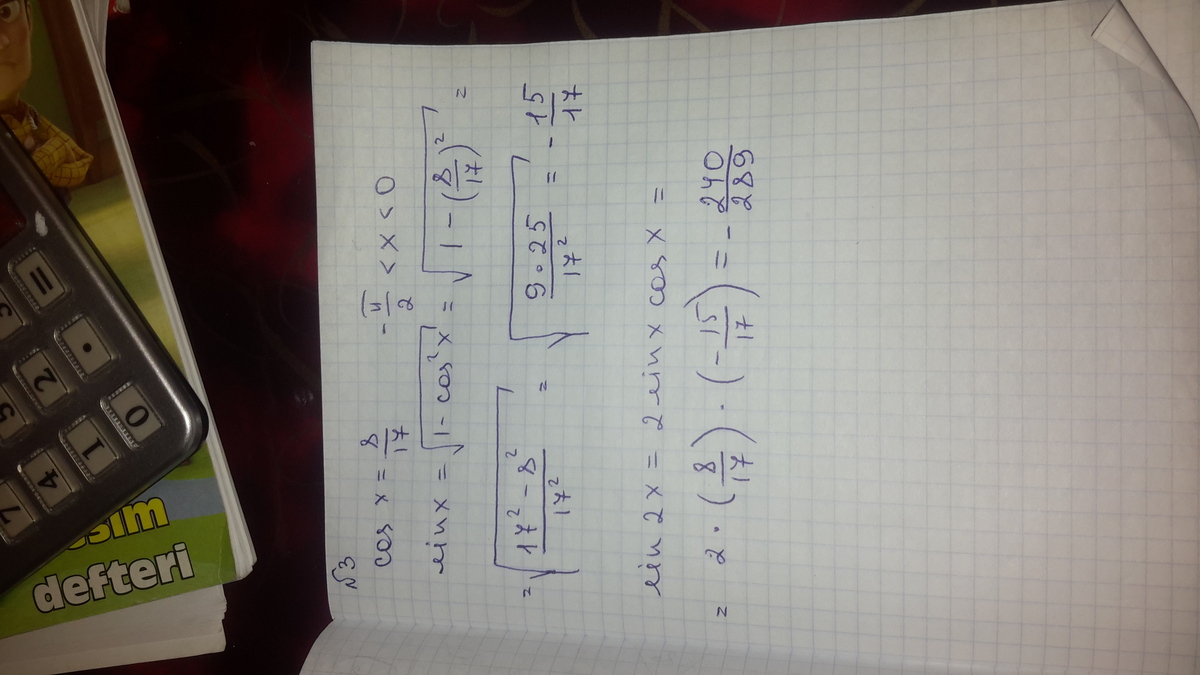 №3
cos x = 8/17   -π/2 < x < 0
sin x = √(1 - cos² x) = √(1 - (8/17)²) =
= √((17² - 8²)/17²) = √((9 · 25)/17²) = - 15/17
sin 2x = 2 sin x cos x =
= 2 · (8/17) · (- 15/17) = - 240/289
defteri
=
3
·
2
5
0
1
4
7